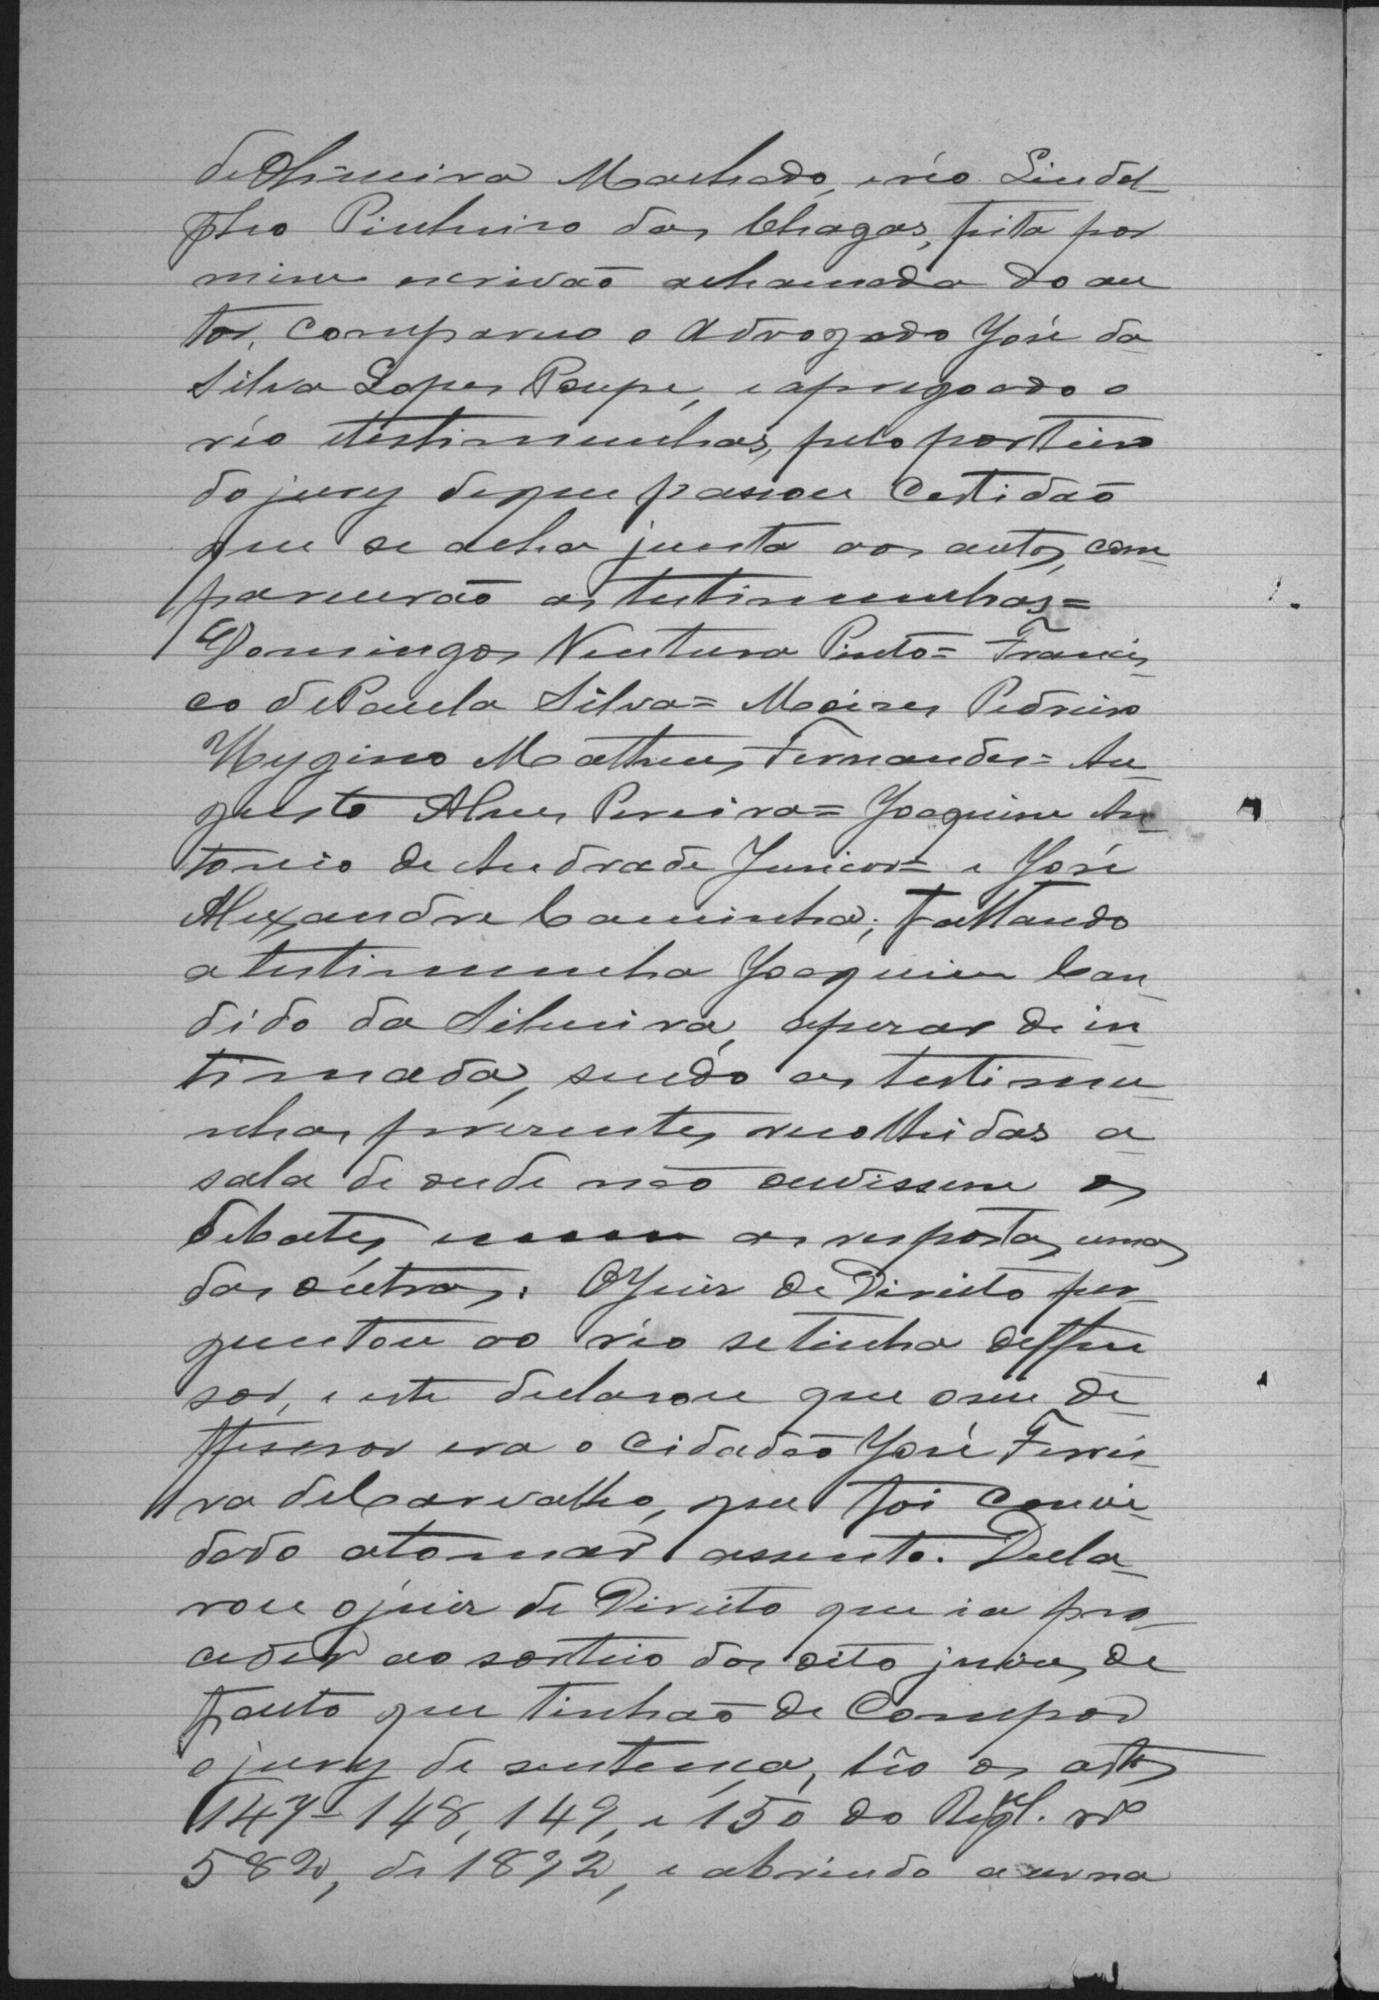 de Oliveira Machado, e réo Lindol-
pho Pinheiro das Chagas, feita por
mim escrivão a chamada do au
tor, compareceo o advogado José da
Silva Lopes Poupe, e apregoado o
réo e testimunhas, pelo porteiro
do jury de que passou certidão
que se acha junta aos autos, com-
parecerão as testimunhas=
Domingos Ventura Pinto= Francis-
co de Paula Silva= Moises Pedreiro
Hygino Matheus Fernandes= Au-
gusto Alves Pereira= Joaquim An-
tonio de Andrade Junior= e José
Alexandre Caminha; faltando
a testimunha Joaquim Can-
dido da Silveira, apesar de in-
timada, sendo as testimu-
nhas presentes recolhidas a
sala de onde não ouvissem os
debates, e as respostas umas
das outras. O Juiz de Direito per-
guntou ao réo se tinha deffen
sor, e este declarou que o seu de-
ffensor era o cidadão José Ferrei-
ra de Carvalho, que foi convi-
dado a tomar assento. Decla-
rou o juiz de Direito que ia pro-
ceder ao sorteio dos oito juizes de
facto que tinhão de compor
o jury de sentença, lêo os artos
147- 148, 149, e 150 do Regl. nº
582, de 1892, e abrindo a urna